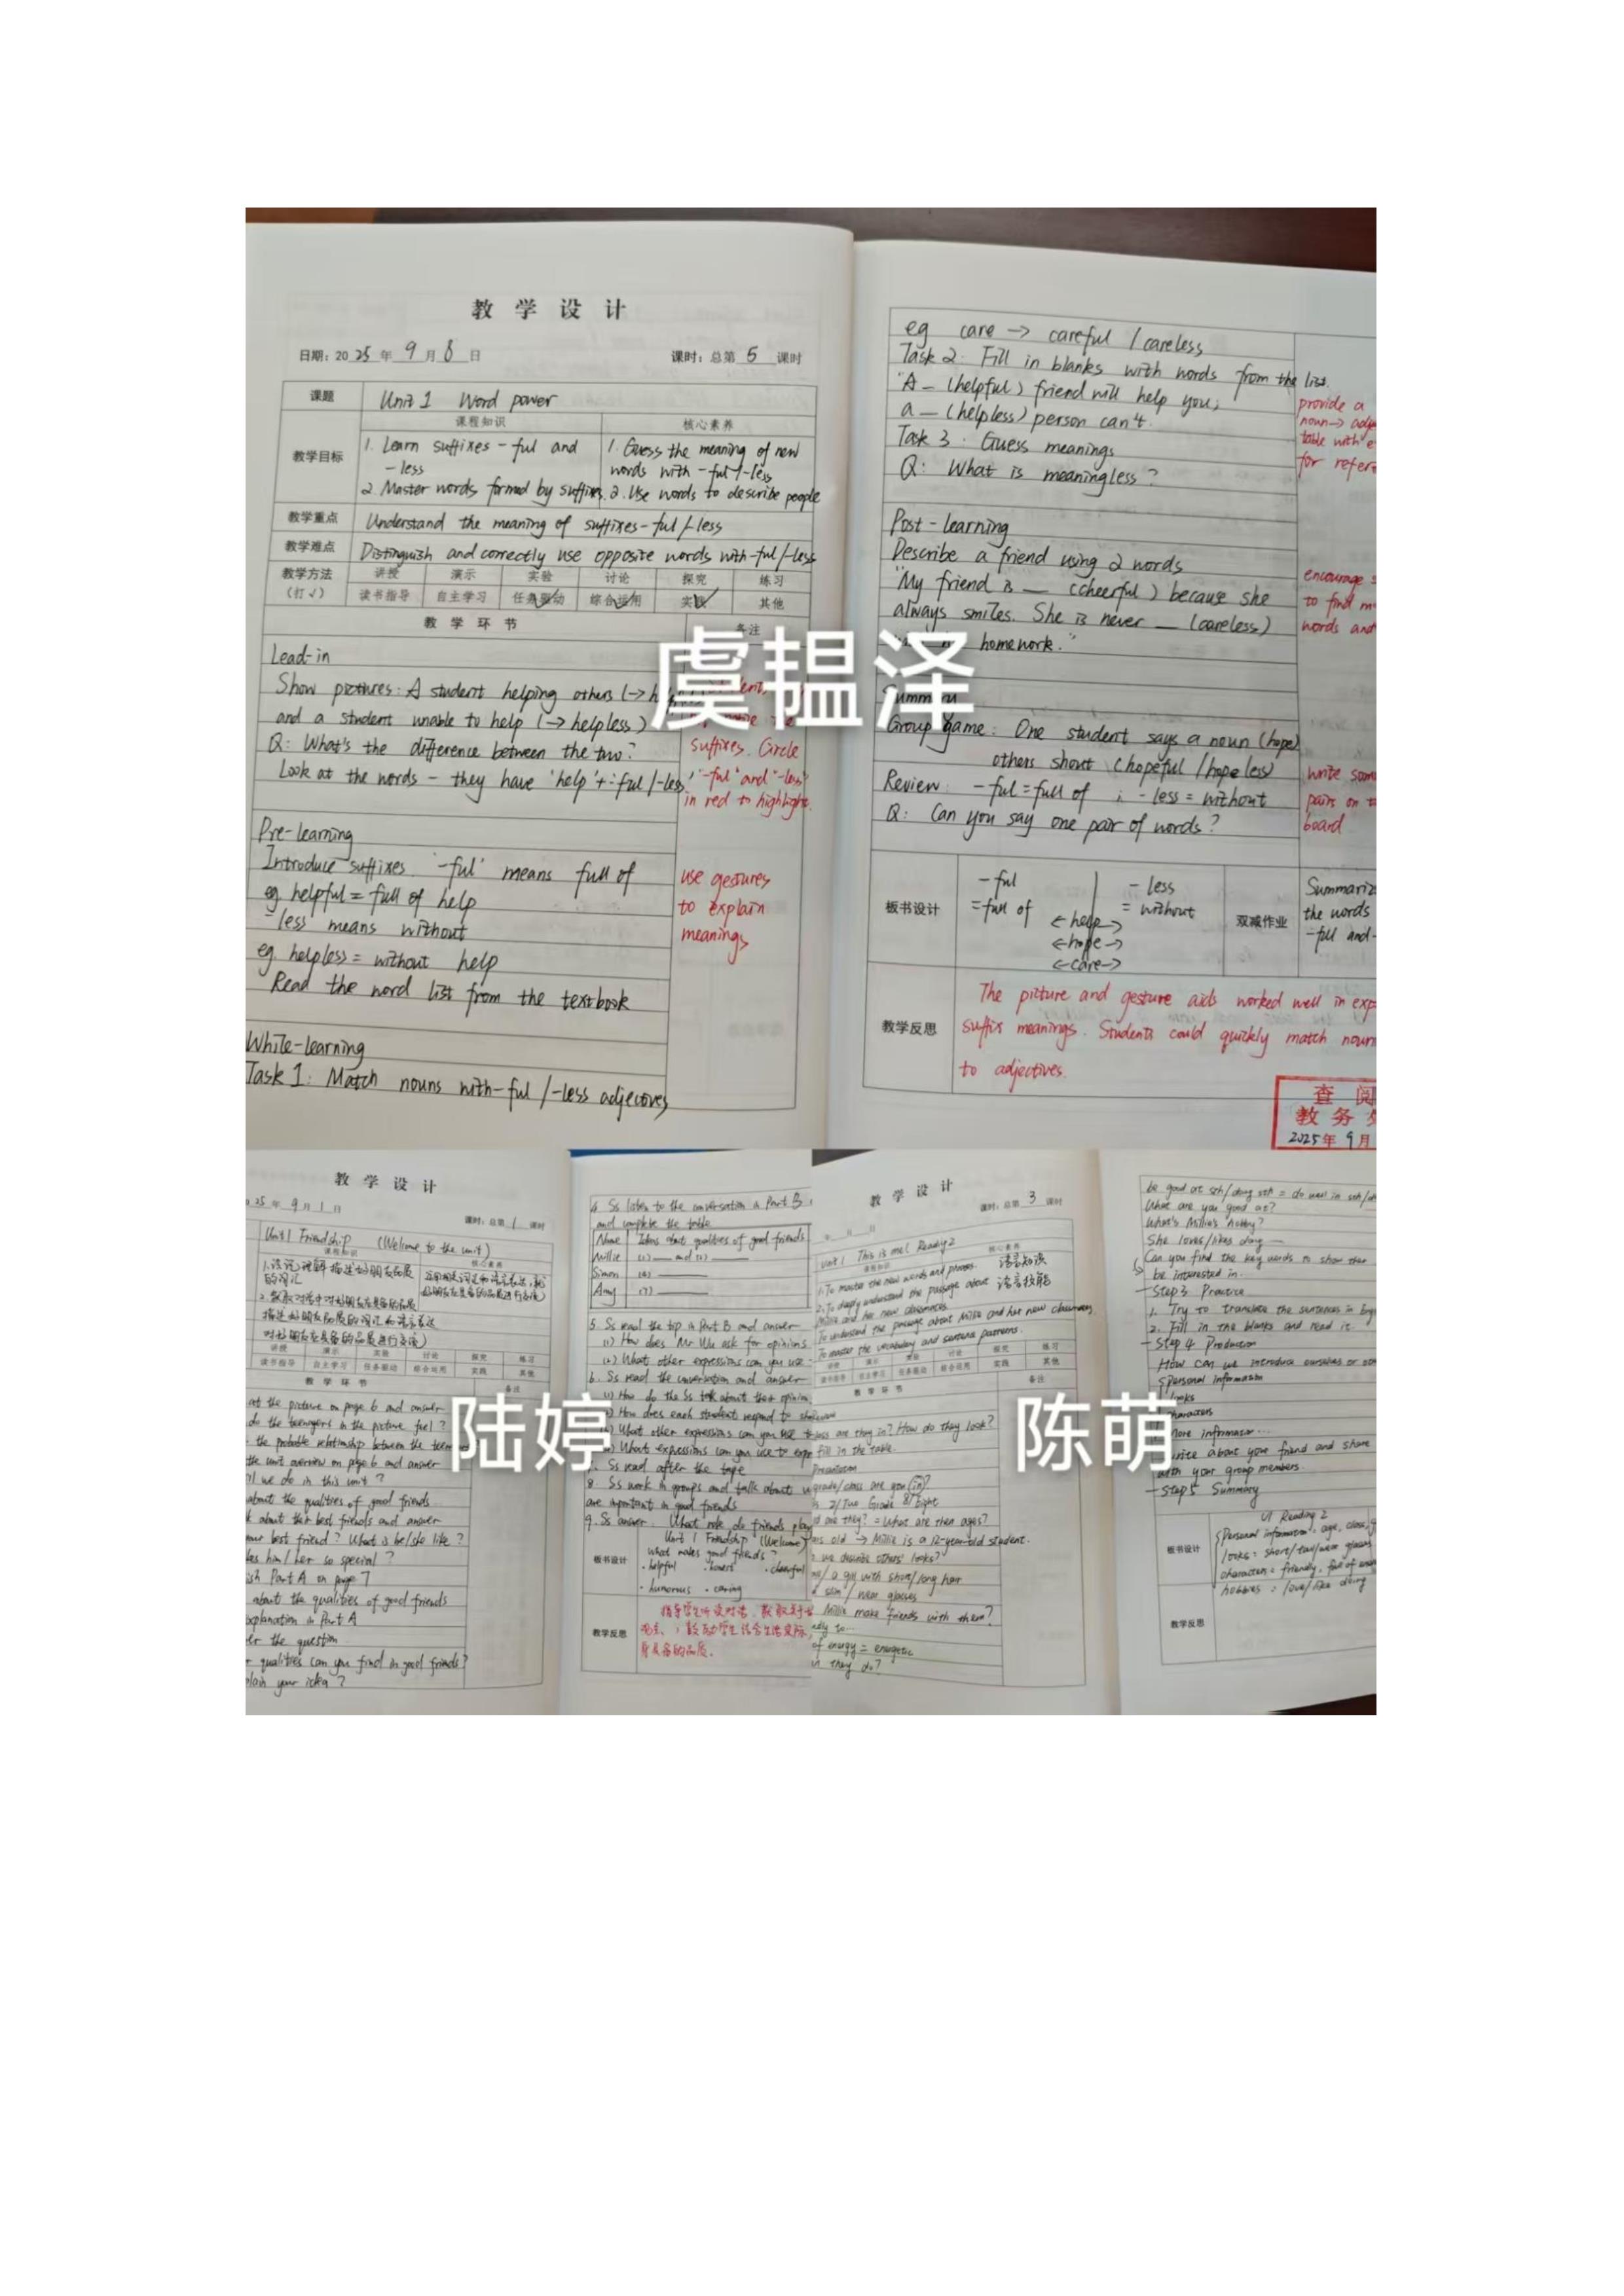 教 学 设 计
日期：2025年 9 月 8 日 课时：总第 5 课时
课题 Unit 1 Word power
课程知识 核心素养
教学目标
1. Learn suffixes -ful and -less
2. Master words formed by suffixes.
1. Guess the meaning of new words with -ful/-less
2. Use words to describe people
教学重点 Understand the meaning of suffixes-ful/-less
教学难点 Distinguish and correctly use opposite words with-ful/-less
教学方法 讲授 演示 实验 讨论 探究 练习
（打√） 读书指导 自主学习 任务驱动 综合运用 实践 其他
教 学 环 节 备注
Lead-in
Show pictures: A student helping others (→
and a student unable to help (→ helpless)
Q: What's the difference between the two?
Look at the words - they have 'help'+-ful/-less
suffixes. Circle
"-ful" and "-less"
in red to highlight.
Pre-learning
Introduce suffixes. '-ful' means full of
eg helpful = full of help
-less means without
eg. helpless = without help
Read the word list from the textbook
use gestures
to explain
meanings
While-learning
Task 1: Match nouns with-ful/-less adjectives
eg care → careful / careless
Task 2: Fill in blanks with words from the list.
"A _ (helpful) friend will help you;
a _ (helpless) person can't.
Task 3: Guess meanings
Q: What is meaningless?
provide a
noun→
table with
for
Post-learning
Describe a friend using 2 words
"My friend is __ (cheerful) because she
always smiles. She is never __ (careless)
homework."
encourage
to find
words and
Summary
Group game: One student says a noun (hope)
others shout (hopeful / hopeless)
Review: -ful = full of ; -less = without
Q: Can you say one pair of words?
write
pairs on
board
板书设计
-ful -less
=full of = without
←help→
←hope→
←care→
双减作业
the words
-ful and
教学反思
The picture and gesture aids worked well in
suffix meanings. Students could quickly match
to adjectives.
教务
2025年 9月
虞韫泽
教 学 设 计
25年 9月 1日
课时：总第 1 课时
Unit 1 Friendship (Welcome to the unit)
课程知识 核心素养
讲授 演示 实验 讨论 探究 练习
读书指导 自主学习 任务驱动 综合运用 实践 其他
教 学 环 节 备注
at the picture on page 6 and answer
do the teenagers in the picture feel?
the probable relationship between the
the unit overview on page 6 and answer
we do in this unit?
about the qualities of good friends
about their best friends and answer
best friend? What is he/she like?
him/her so special?
Part A on page 7
about the qualities of good friends
explanation in Part A
the question
qualities can you find in good friends?
your idea?
4. Ss listen to the conversation in Part B
and complete the table
Name Ideas about qualities of good friends
Millie (1) ____ and (2) ____
Simon
Amy
5. Ss read the tip in Part B and answer
(1) How does Mr Wu ask for opinions
(2) What other expressions can you use
6. Ss read the conversation and answer
(1) How do the Ss talk about their
How does each student respond to
What other expressions can you use
What expressions can you use to
Ss read after the tape
8. Ss work in groups and talk about
are important in good friends
9. Ss answer: What role do friends
板书设计
Unit 1 Friendship (Welcome)
What makes good friends?
· helpful · honest · cheerful
· humorous · caring
教学反思
陆婷
教 学 设 计
课时：总第 3 课时
Unit 1 This is me! Reading 2
课程知识 核心素养
1. To master the new words and phrases. 语言知识
2. To deeply understand the passage about 语言技能
Millie and her new classmates.
To understand the passage about Millie and her new classmates.
To master the vocabulary and sentence patterns.
讲授 演示 实验 讨论 探究 练习
读书指导 自主学习 任务驱动 综合运用 实践 其他
教 学 环 节 备注
are they in? How do they look?
Fill in the table.
Presentation
grade/class are you (in)?
are they? = What are their ages?
old → Millie is a 12-year-old student.
describe others' looks?
a girl with short/long hair
slim / wear glasses
Millie make friends with them?
of energy = energetic
they do?
be good at sth/doing sth = do well in
What are you good at?
What's Millie's hobby?
She loves/likes doing
Can you find the key words to show
be interested in...
Step 3 Practice
1. Try to translate the sentences in
2. Fill in the blanks and read it.
Step 4 Production
How can we introduce ourselves or
personal information
looks
characters
more information...
write about your friend and share
with your group members.
Step 5 Summary
板书设计
U1 Reading 2
Personal information: age, class,
looks: short/tall/wear glasses
characters: friendly, full of energy
hobbies: love/like doing
教学反思
陈萌